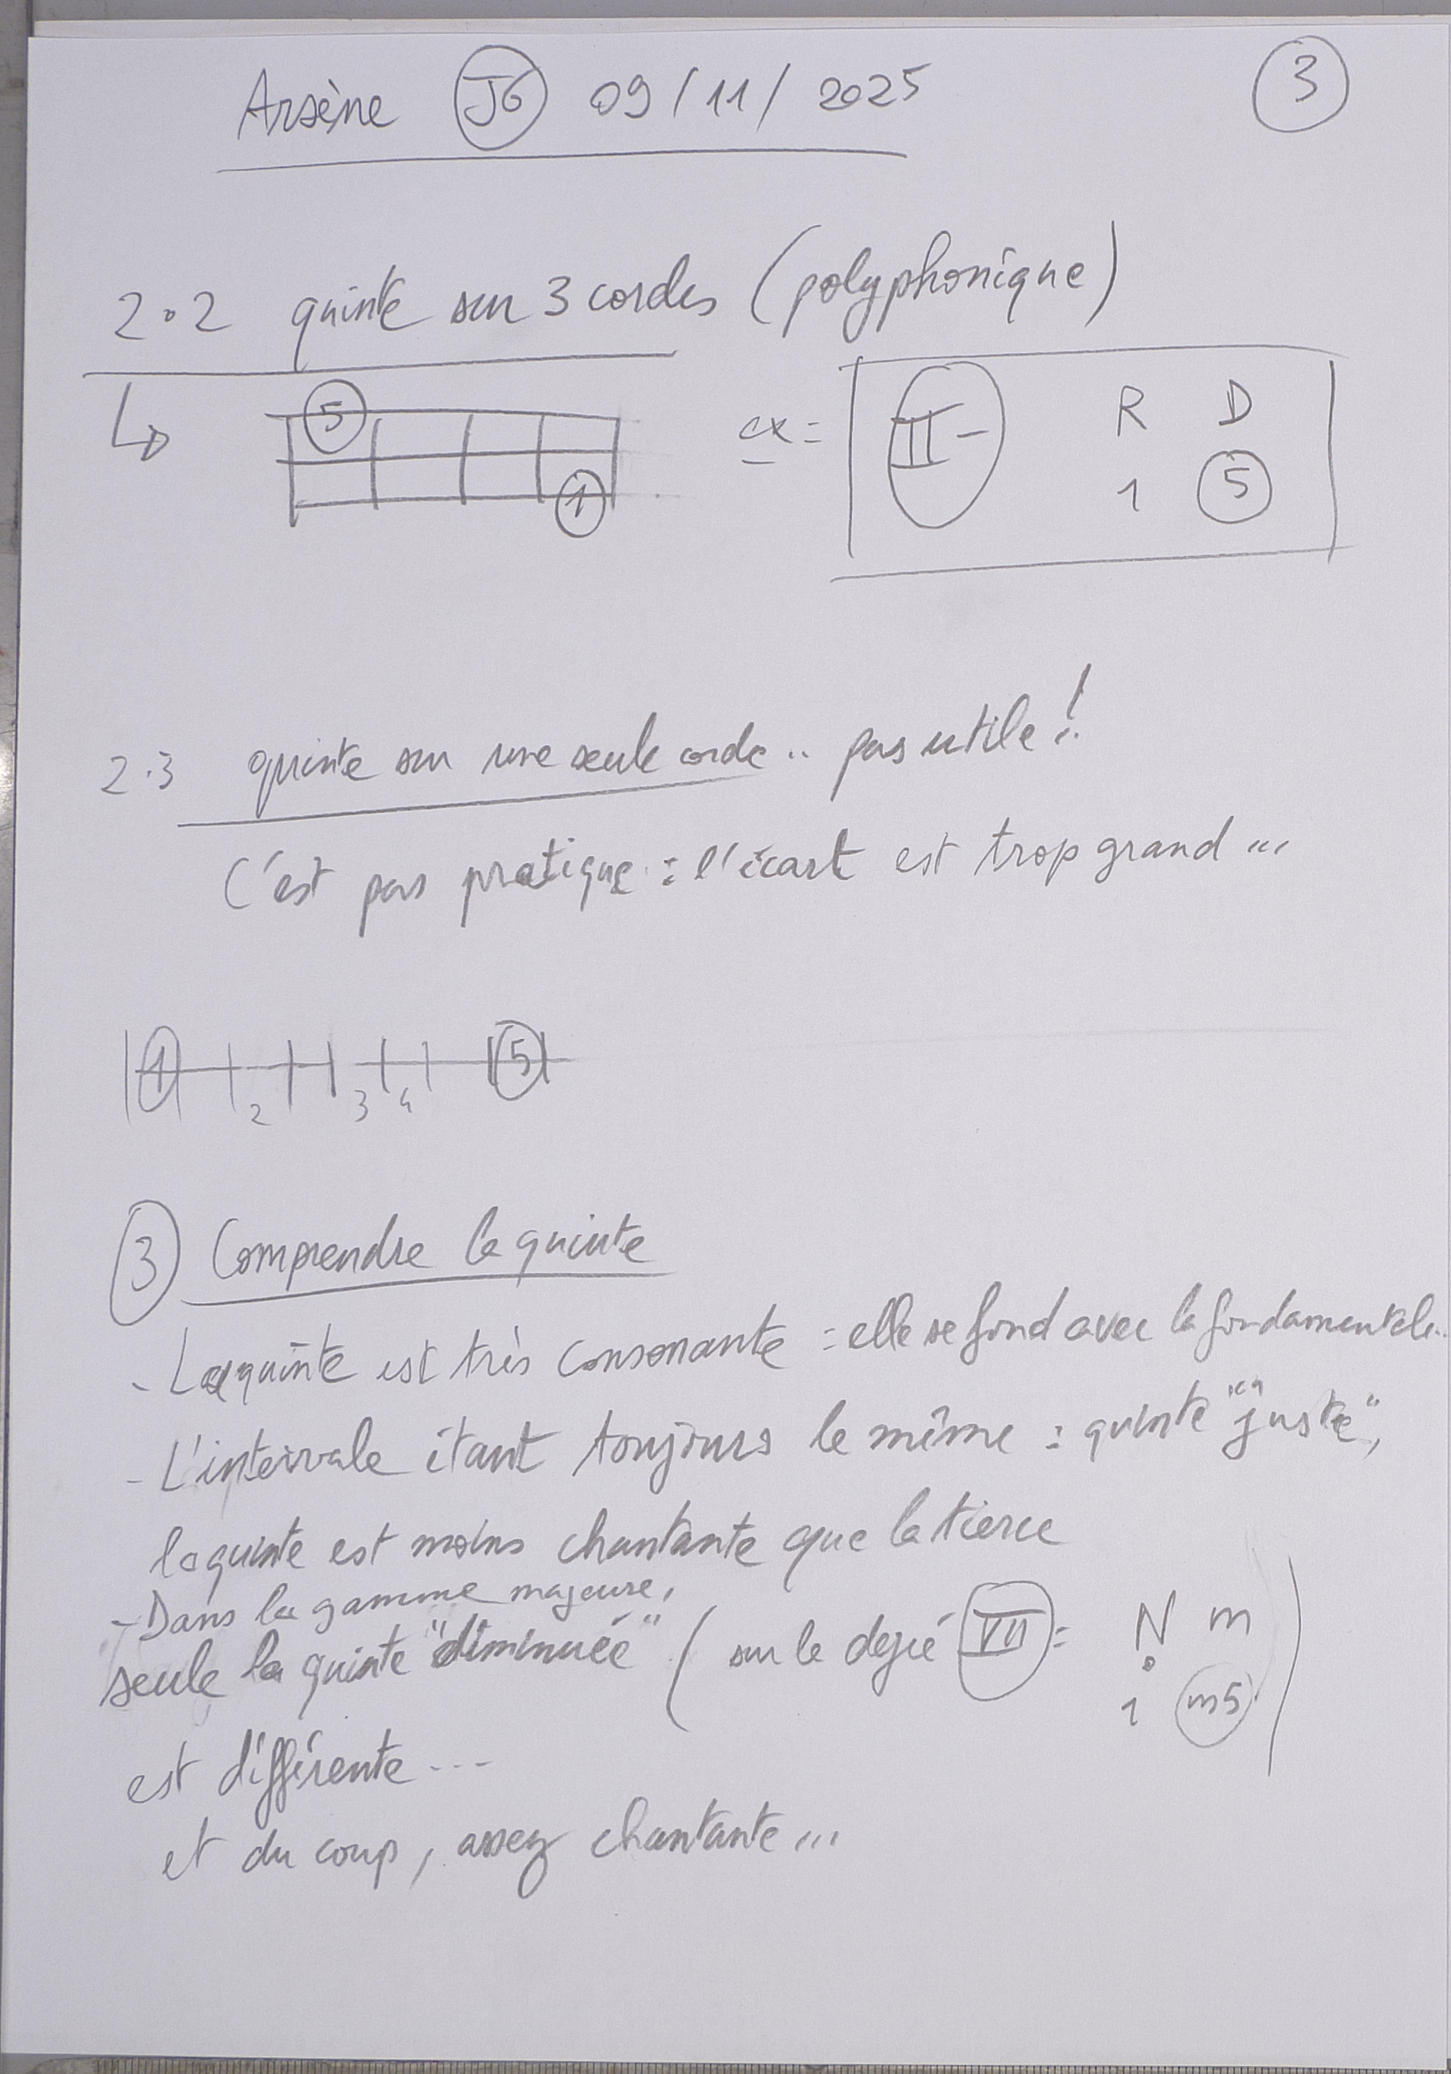 Arsène J6 09/11/2025 3
2.2 quinte sur 3 cordes (polyphonique)
5
1
ex = II- R D
1 5
2.3 quinte sur une seule corde .. pas utile !..
C'est pas pratique : l'écart est trop grand ...
1 2 3 4 5
3 Comprendre la quinte
- La quinte est très consonante : elle se fond avec la fondamentale..
- L'intervale étant toujours le même : quinte "juste",
la quinte est moins chantante que la tierce
- Dans la gamme majeure,
seule la quinte "diminuée" (sur le degré VII = N m
1 m5)
est différente ...
et du coup, assez chantante ...